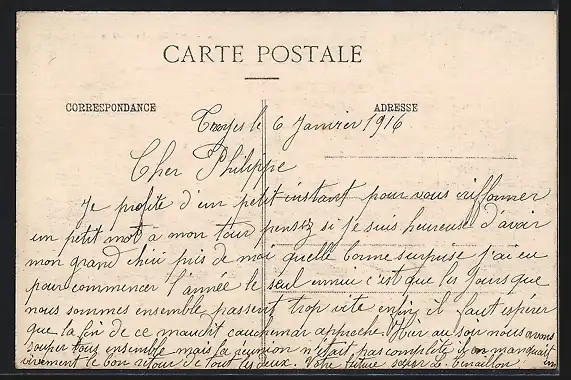 CARTE POSTALE
CORRESPONDANCE
ADRESSE
Troyes le 6 Janvier 1916
Cher Philippe
Je profite d'un petit instant pour vous griffonner
un petit mot a mon tour pensez si je suis heureuse d'avoir
mon grand chéri près de moi quelle bonne surprise j'ai eu
pour commencer l'année le seul ennui c'est que les jours que
nous sommes ensemble passent trop vite enfin il faut espérer
que la fin de ce maudit cauchemar approche. Hier au soir nous avons
souper tous ensemble mais la réunion n'était pas complète il en manquait
vivement le bon retour de tous les deux. Votre future sœur